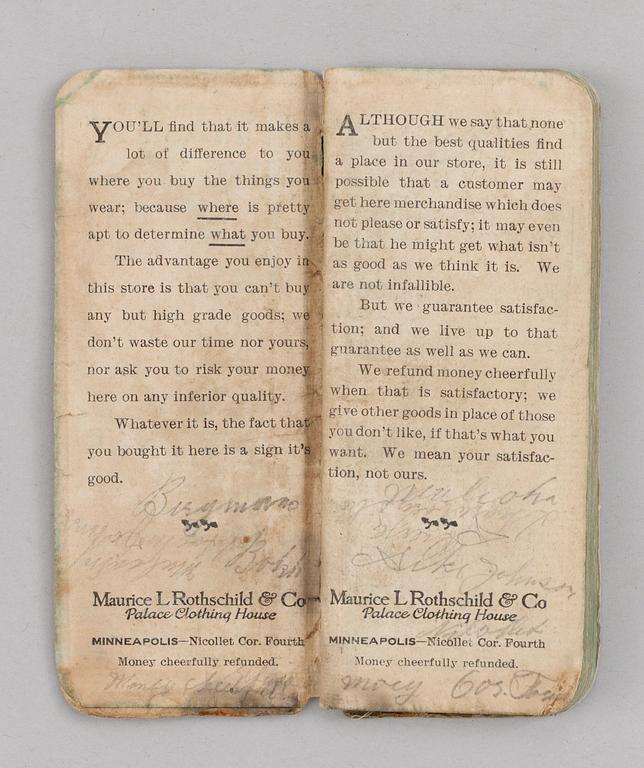 YOU'LL find that it makes a
lot of difference to you
where you buy the things you
wear; because where is pretty
apt to determine what you buy.
The advantage you enjoy in
this store is that you can't buy
any but high grade goods; we
don't waste our time nor yours,
nor ask you to risk your money
here on any inferior quality.
Whatever it is, the fact that
you bought it here is a sign it's
good.
Bergman
Maurice L Rothschild & Co
Palace Clothing House
MINNEAPOLIS—Nicollet Cor. Fourth
Money cheerfully refunded.
Money
ALTHOUGH we say that none
but the best qualities find
a place in our store, it is still
possible that a customer may
get here merchandise which does
not please or satisfy; it may even
be that he might get what isn't
as good as we think it is. We
are not infallible.
But we guarantee satisfac-
tion; and we live up to that
guarantee as well as we can.
We refund money cheerfully
when that is satisfactory; we
give other goods in place of those
you don't like, if that's what you
want. We mean your satisfac-
tion, not ours.
Johnson
Maurice L Rothschild & Co
Palace Clothing House
MINNEAPOLIS—Nicollet Cor. Fourth
Money cheerfully refunded.